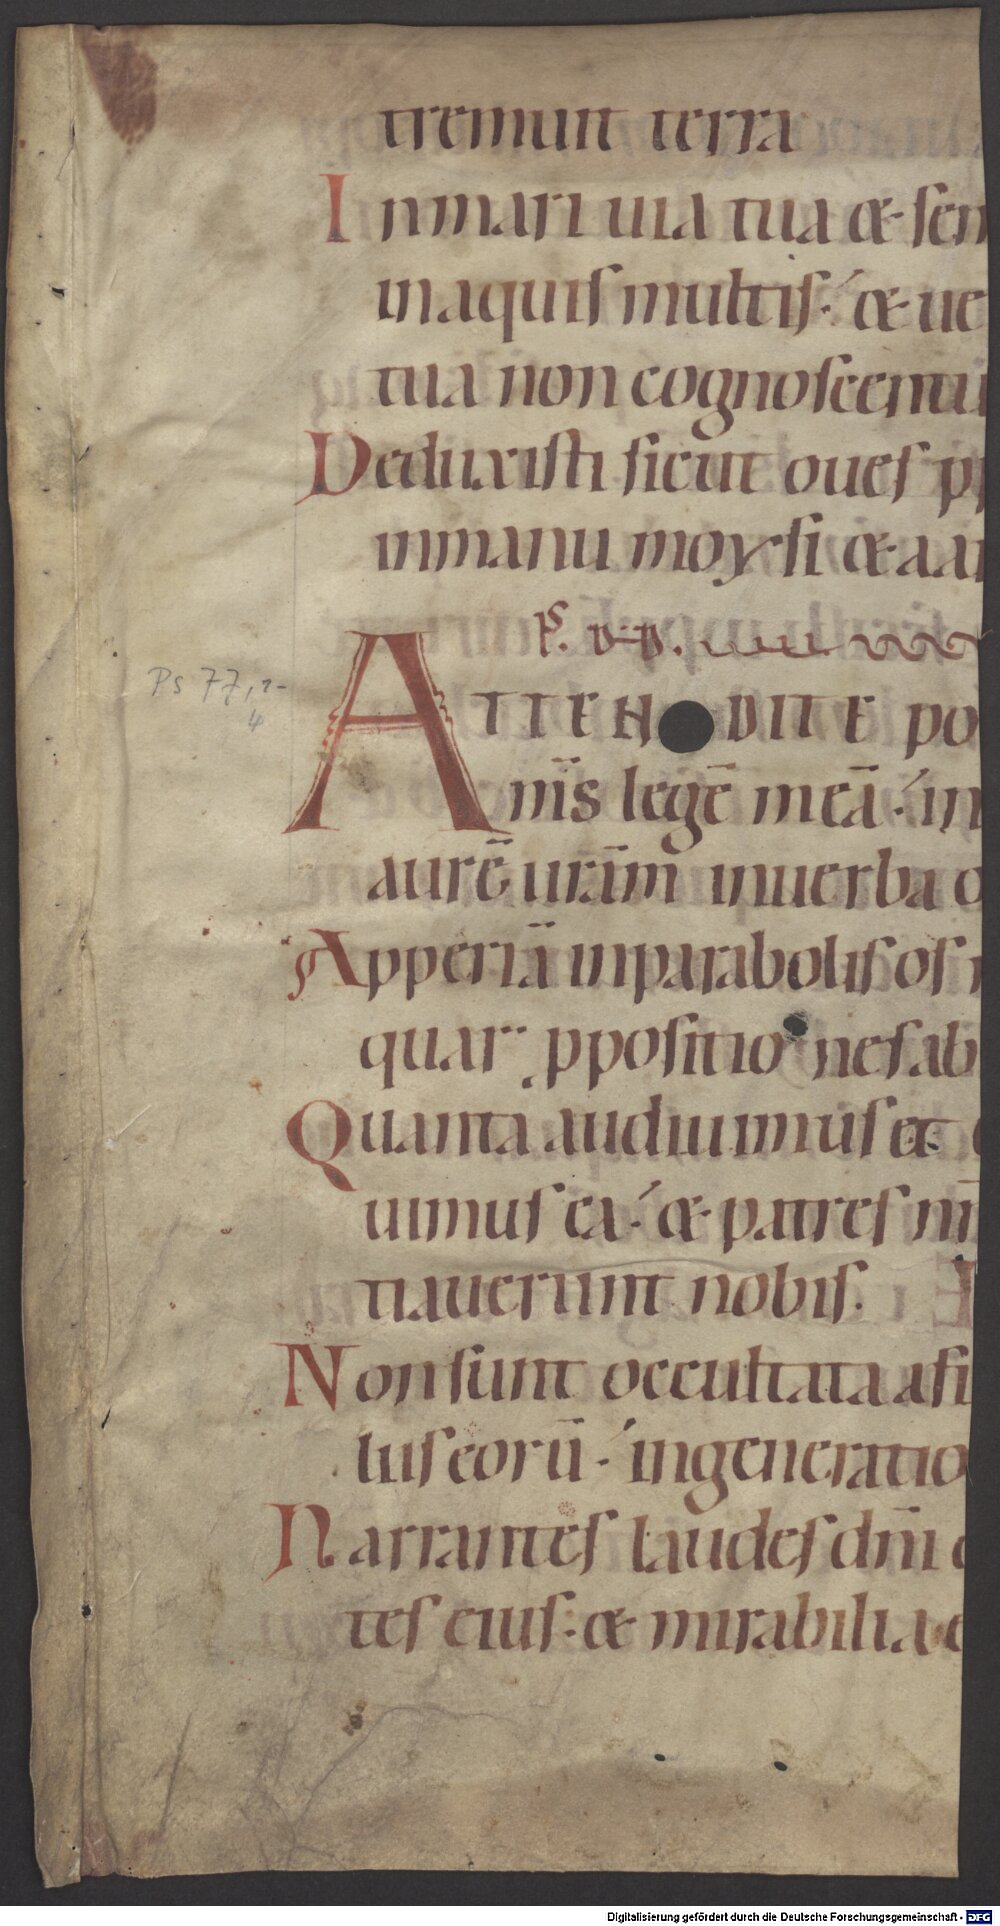 tremuit terra
In mari uia tua & sem
in aquis multis: & ue
tua non cognoscentur
Deduxisti sicut oues pp
in manu moysi & aar
ps. dd.
ATTENDITE po
m̄s legē meā: in
aurē ur̄am in uerba o
Apperiā in parabolis os m
quar ppositiones ab
Quanta audiuimus et c
uimus ea: & patres nr̄i
tiauerunt nobis.
Non sunt occultata a fi
liis eorū: in generatio
Narrantes laudes dn̄i e
tes eius: & mirabilia e
Ps 77,1-
4
Digitalisierung gefördert durch die Deutsche Forschungsgemeinschaft - DFG